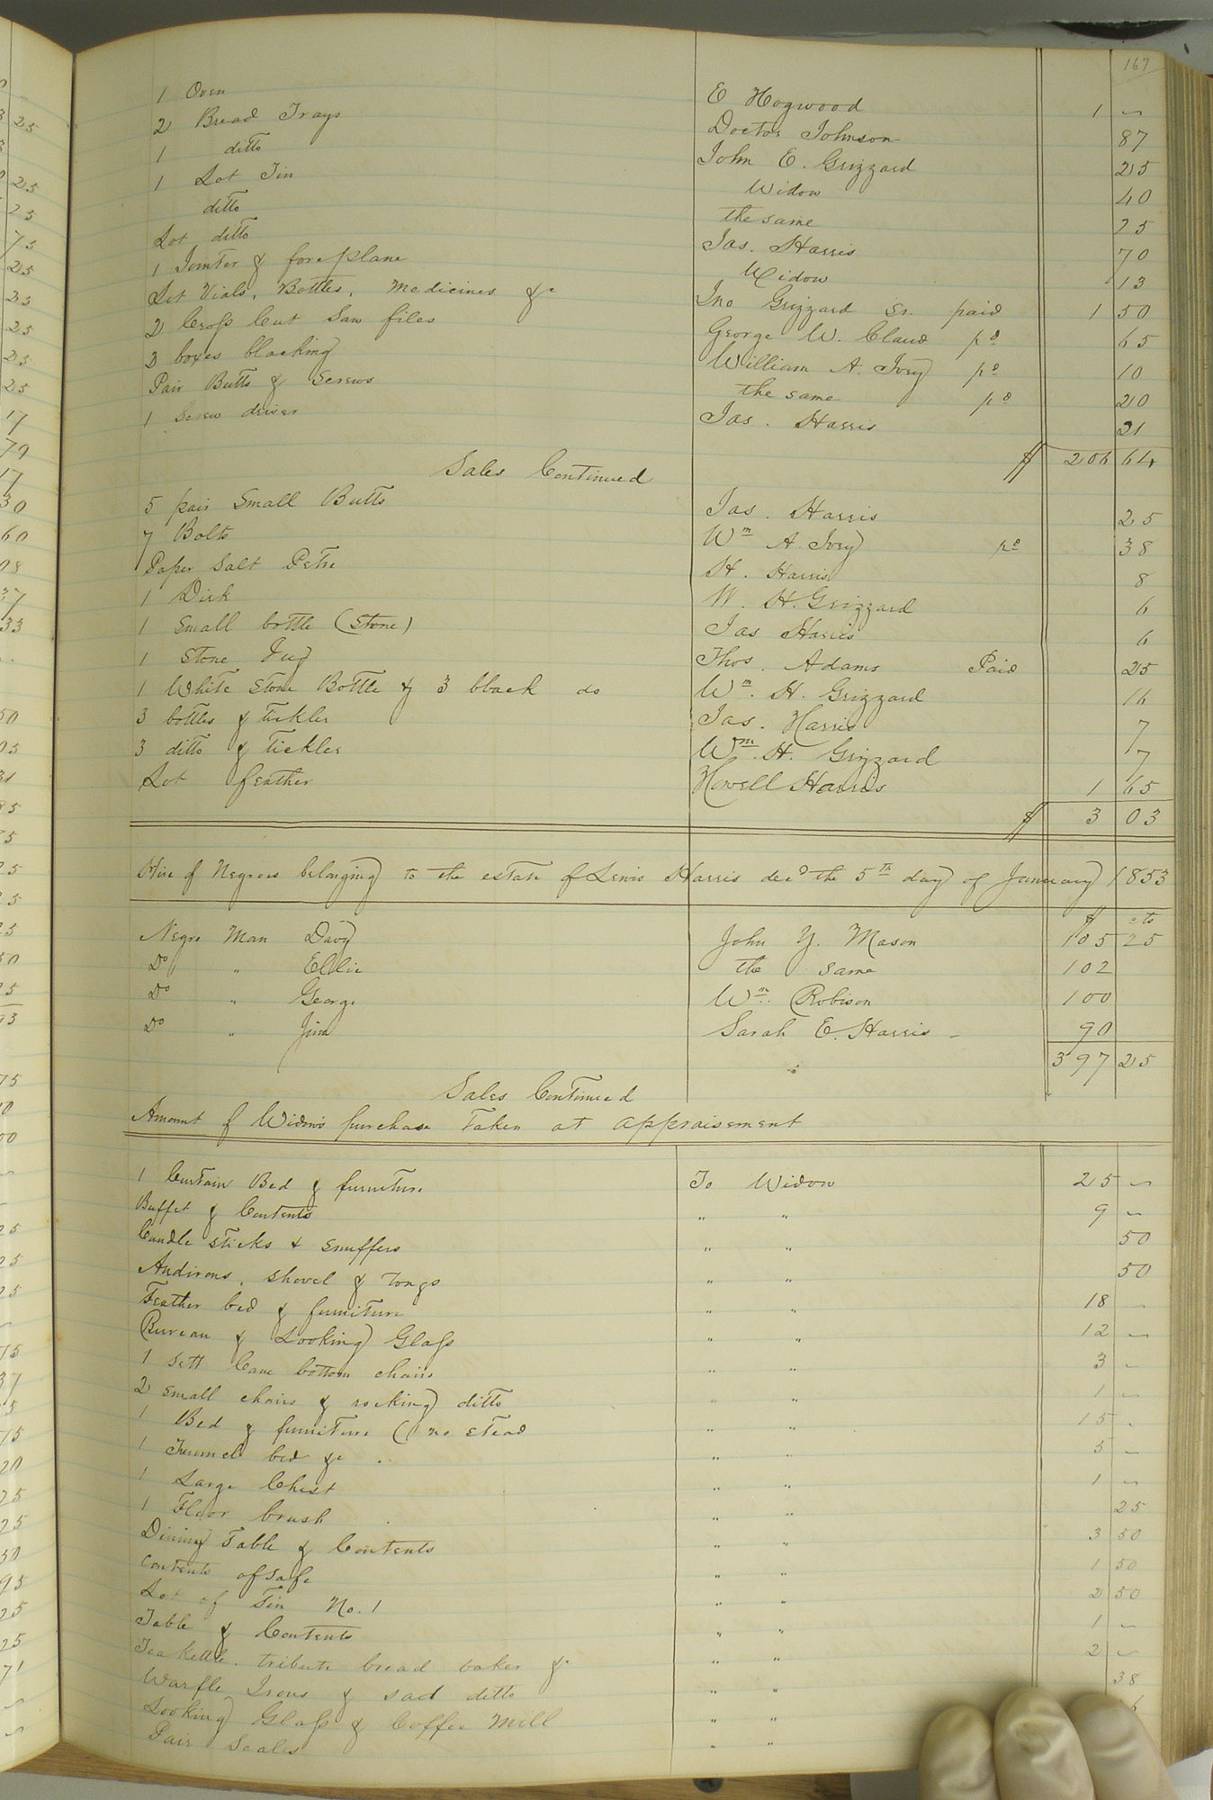 167
1 Oven E Hogwood 1 "
2 Bread Trays Doctor Johnson 87
1 ditto John E. Grizzard 25
1 Lot Tin Widow 40
ditto the same 25
Lot ditto Jas. Harris 70
1 Jointer & fore plane Widow 13
Lot Vials, Bottles, Medicines &c Jno Grizzard Sr. paid 1 50
2 Cross Cut Saw files George W. Claud pd 65
3 boxes blacking William A. Ivey pd 10
Pair Butts & Screws the same pd 20
1 Screw driver Jas. Harris 21
$ 206 64
Sales Continued
5 pair Small Butts Jas. Harris 25
7 Bolts Wm A Ivey pd 38
Paper Salt Petre H. Harris 8
1 Dirk W. H. Grizzard 6
1 small bottle (Stone) Jas Harris 6
1 Stone Jug Thos. Adams Paid 25
1 White Stone Bottle & 3 bback do Wm. H. Grizzard 16
3 bottles & tickler Jas. Harris 7
3 ditto & tickler Wm. H. Grizzard 7
Lot feather Howell Harris 1 65
$ 3 03
Hire of Negroes belonging to the estate of Lewis Harris decd the 5th day of January 1853
$ cts
Negro Man Davy John Y. Mason 105 25
Do " the same 102
Do " George Wm. Robison 100
Do " Jim Sarah E. Harris 90
397 25
Sales Continued
Amount of Widows purchase Taken at appraisement
1 Curtain Bed & furniture To Widow 25 "
Buffet & Contents " " 9 "
Candle sticks & snuffers " " 50
Andirons, shovel & tongs " " 50
Feather bed & furniture " " 18 "
Bureau & Looking Glass " " 12 "
1 sett Cane bottom chairs " " 3 "
2 small chairs & rocking ditto " " 1 "
1 Bed & furniture (no stead " " 15 "
1 Trunnel bed &c " " 5 "
1 Large Chest " " 1 "
1 Floor brush " " 25
Dining Table & Contents " " 3 50
Contents of safe " " 1 50
Lot of Tin No. 1 " " 2 50
Table & Contents " " 1 "
Tea kettle bread baker &c " " 2 "
Warfle Irons & sad ditto " " 38
Looking Glass & Coffee Mill " "
Pair Scales " "